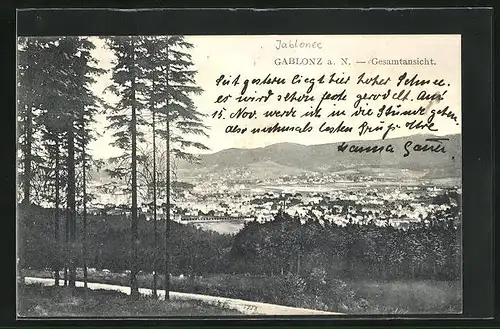 Jablonec
GABLONZ a. N. — Gesamtansicht.
Seit gestern liegt hier hoher Schnee.
er wird schon feste gerodelt. Am
15. Nov. werde ich in die Stunde gehen.
Also nochmals besten Gruß Ihre
Hanna